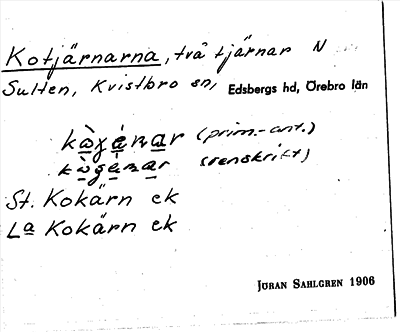 Kotjärnarna, två tjärnar N
Sulten, Kvistbro sn, Edsbergs hd, Örebro län
(prim.-ant.)
(renskrift)
St. Kokärn ek
La Kokärn ek
JÖRAN SAHLGREN 1906